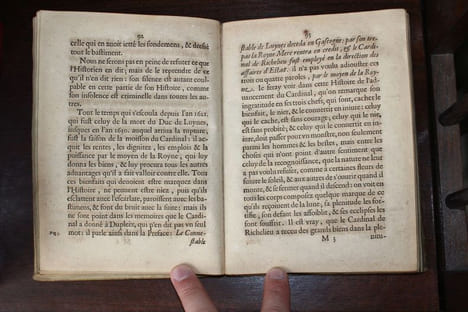 92
celle qui en auoit ietté les fondemens, & destruit
tout le bastiment.
Nous ne serons pas en peine de refuter ce que
l'Historien en dit; mais de le reprendre de ce
qu'il n'en dit rien: son silence est autant coul-
pable en cette partie de son Histoire, comme
son insolence est criminelle dans toutes les au-
tres.
Tout le temps qui s'escoula depuis l'an 1621.
qui fut celuy de la mort du Duc de Luynes,
iusques en l'an 1630. auquel arriua la rupture,
fust la saison de la moisson du Cardinal; il ac-
quit les rentes, les dignitez, les emplois & la
puissance par le moyen de la Royne, qui luy
donna les biens, & luy procura tous les autres
aduantages qu'il a fait valloir contre elle. Tous
ces bienfaits qui deuoient estre marquez dans
l'Histoire, ne peuuent estre niez, puis qu'ils
esclatent auec l'escarlate, paroissent auec les ba-
stimens, & font du bruit auec la suite; mais ils
ne sont point dans les memoires que le Cardi-
nal a donné à Dupleix, qui n'en dit pas vn seul
mot: il parle ainsi dans sa Preface: Le Conne-
stable
93
stable de Luynes deceda en Gascogne; par son tres-
pas la Royne Mere rentra en credit, & le Cardi-
nal de Richelieu fust employé en la direction des
affaires d'Estat. il n'a pas voulu adiouster ces
trois ou quatre paroles, par le moyen de la Roy-
ne. Ie feray voir dans cette Histoire de l'ad-
uancement du Cardinal, qu'on remarque son
ingratitude en ses trois chefs, qui sont, cacher le
bienfait, le nier, & le conuertir en iniure; celuy
qui le cache, est sans courage; celuy qui le nie,
est sans probité; & celuy qui le conuertit en in-
iure, doit passer pour vn monstre, non seulement
parmi les hommes & les bestes, mais entre les
choses qui n'ont point d'autre sentiment que
celuy de la recognoissance, que la nature ne leur
a pas voulu refuser, comme a certaines fleurs de
suiure le soleil, & aux autres de s'ouurir quand il
monte, & se fermer quand il descend: on voit en
tous les corps composez quelque marque de ce
qu'ils reçoiuent de la lune, sa plenitude les for-
tifie, son defaut les affoiblit, & ses eclipses les
font souffrir. Il est vray, que le Cardinal de
Richelieu a receu des grands biens dans la ple-
M 3
nitu-